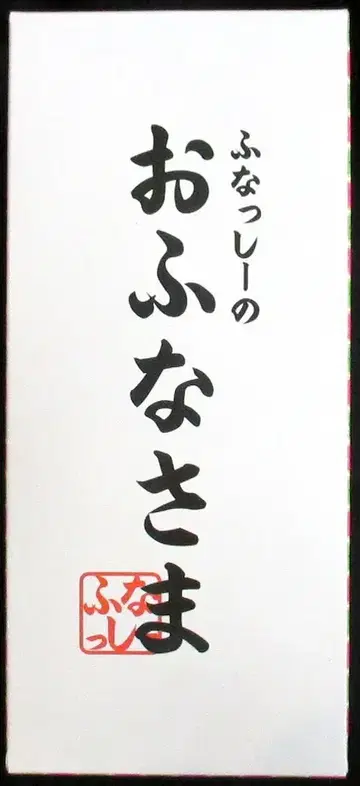 ふなっしーの
おふなさま
ふなっしー